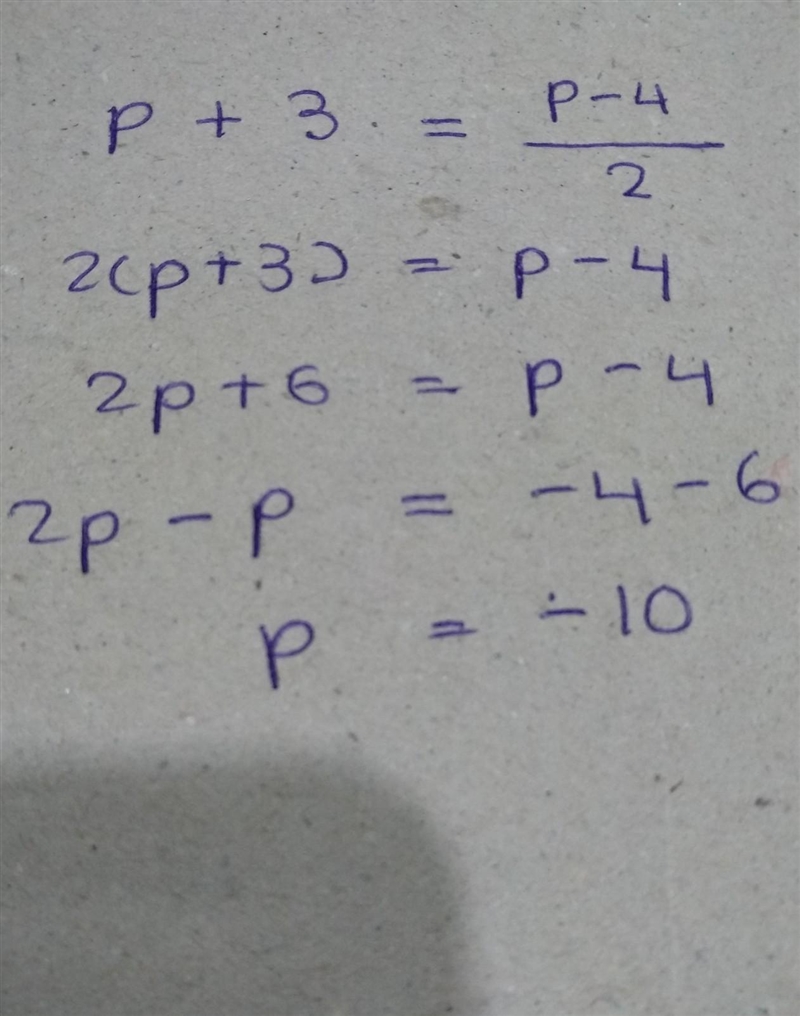 p + 3 = (p-4)/2
2(p+3) = p-4
2p+6 = p-4
2p-p = -4-6
p = -10